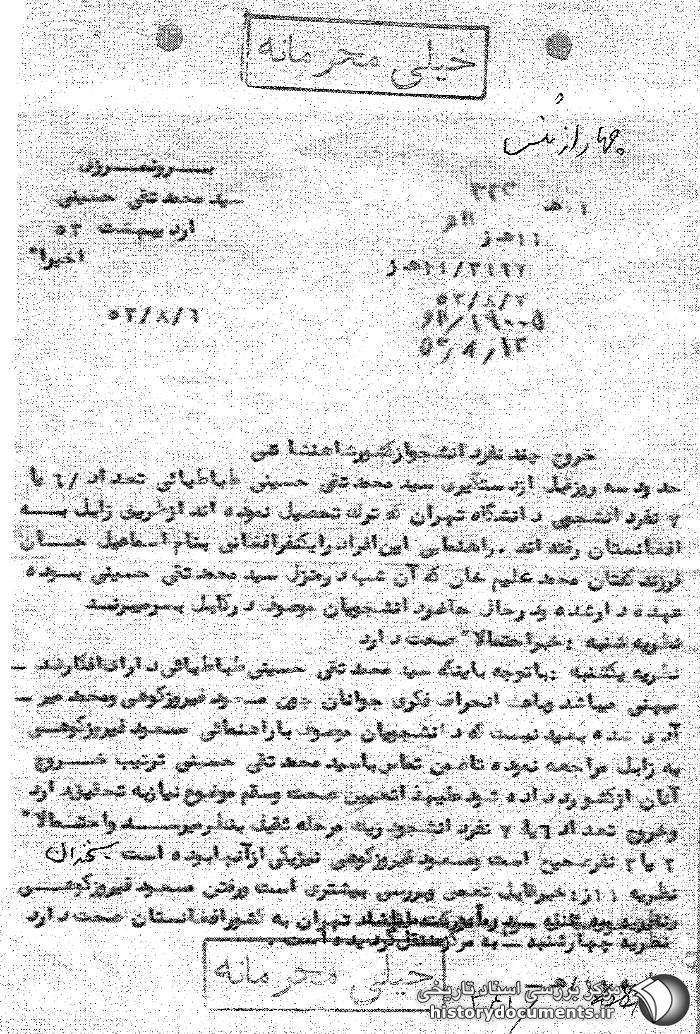 خیلی محرمانه
چهار از
سید محمد تقی حسینی
اردیبهشت ۵۳
اخیرا"
۵۳/۸/۶
۳۲۳
۱۱هـ ز
۱۱/۳۱۶۷هـ ز
۵۳/۸/۷
۵۳/۸/۱۳
خروج چند نفر دانشجو از کشور شاهنشاهی
حدود سه روز قبل از دستگیری سید محمد تقی حسینی طباطبائی تعداد ۶/ یا
۷ نفر دانشجوی دانشگاه تهران که ترک تحصیل نموده اند از طریق زابل بــه
افغانستان رفته اند . راهنمای این افراد را یکنفر افغانی بنام اسماعیل خــان
فرزند کفتان محمد علیم خان که آن شب در منزل سید محمد تقی حسینی بسوده
عهده دار شده و در حال حاضر دانشجویان موصوف در کابل بسر میبرند
نظریه شنبه : خبر احتمالا" صحت دارد
نظریه یکشنبه : با توجه باینکه سید محمد تقی حسینی طباطبائی دارای افکار ضد ـ
میهنی میباشد و باعث انحراف فکری جوانان چون مسعود فیروزکوهی و محمد میر ـ
آدی شده بعید نیست که دانشجویان موصوف با راهنمائی مسعود فیروزکوهــی
به زابل مراجعه نموده تا ضمن تماس با سید محمد تقی حسینی ترتیب خــروج
آنان از کشور داده شود علیهذا تعیین صحت و سقم موضوع نیاز به تحقیق دارد
و خروج تعداد ۶ یا ۷ نفر دانشجو در یک مرحله ثقیل بنظر میرسد و احتمالا"
۲ یا ۳ نفر صحیح است و مسعود فیروزکوهی نیز یکی از آنها بوده است .
نظریه ۱۱ز : خبر قابل تعمق و بررسی بیشتری است و رفتن مسعود فیروزکوهــی
تهران به کشور افغانستان صحت دارد
نظریه چهارشنبه ـ به مرکز منتقل گردیده است .
خیلی محرمانه
مرکز بررسی اسناد تاریخی
historydocuments.ir